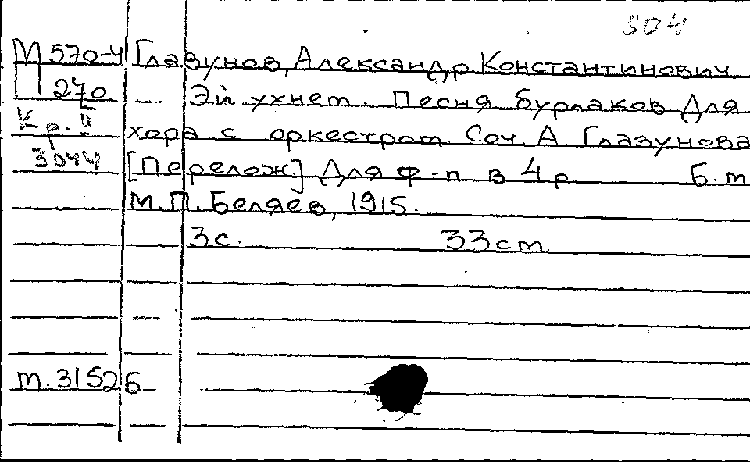 504
М 570-4 Глазунов, Александр Константинович
П 270 Эй ухнем. Песня бурлаков Для
Кр. II хора с оркестром Соч. А Глазунова
3044 [Перелож] Для ф-п в 4 р Б.м
М.П. Беляев, 1915.
3с. 33см
т.31526